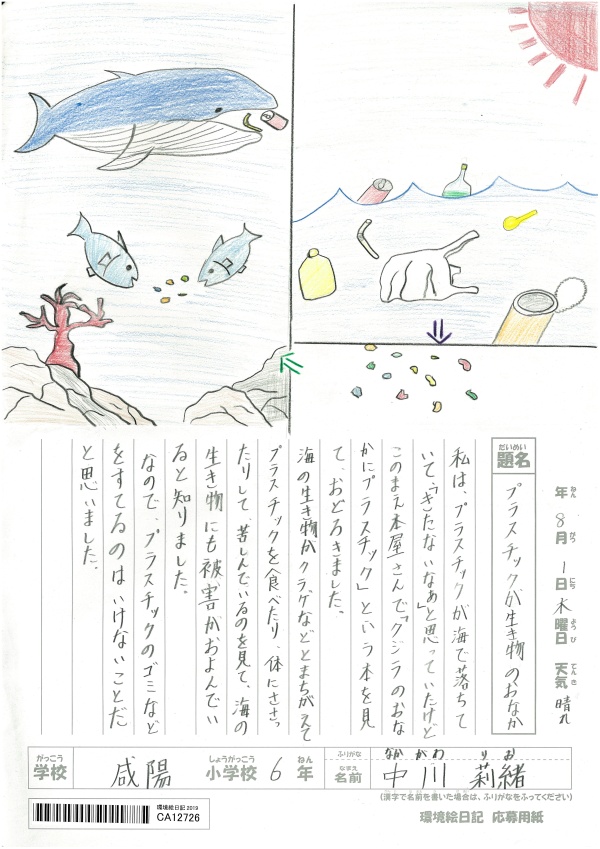 年 ねん 8月 がつ 1日 にち 木曜日 ようび 天気 てんき 晴れ
だいめい
題名
プラスチックが生き物のおなか
私は、プラスチックが海で落ちて
いて、「きたないなぁ」と思っていたけど
このまえ本屋さんで「クジラのおな
かにプラスチック」という本を見
て、おどろきました。
海の生き物がクラゲなどとまちがえて
プラスチックを食べたり、体にささっ
たりして、苦しんでいるのを見て、海の
生き物にも被害がおよんでい
ると知りました。
なので、プラスチックのゴミなど
をすてるのはいけないことだ
と思いました。
がっこう しょうがっこう ねん ふりがな なかがわ りお
学校 咸陽 小学校 6 年 なまえ 名前 中川 莉緒
(漢字で名前を書いた場合は、ふりがなをふってください)
環境絵日記 2019
CA12726
環境絵日記 応募用紙